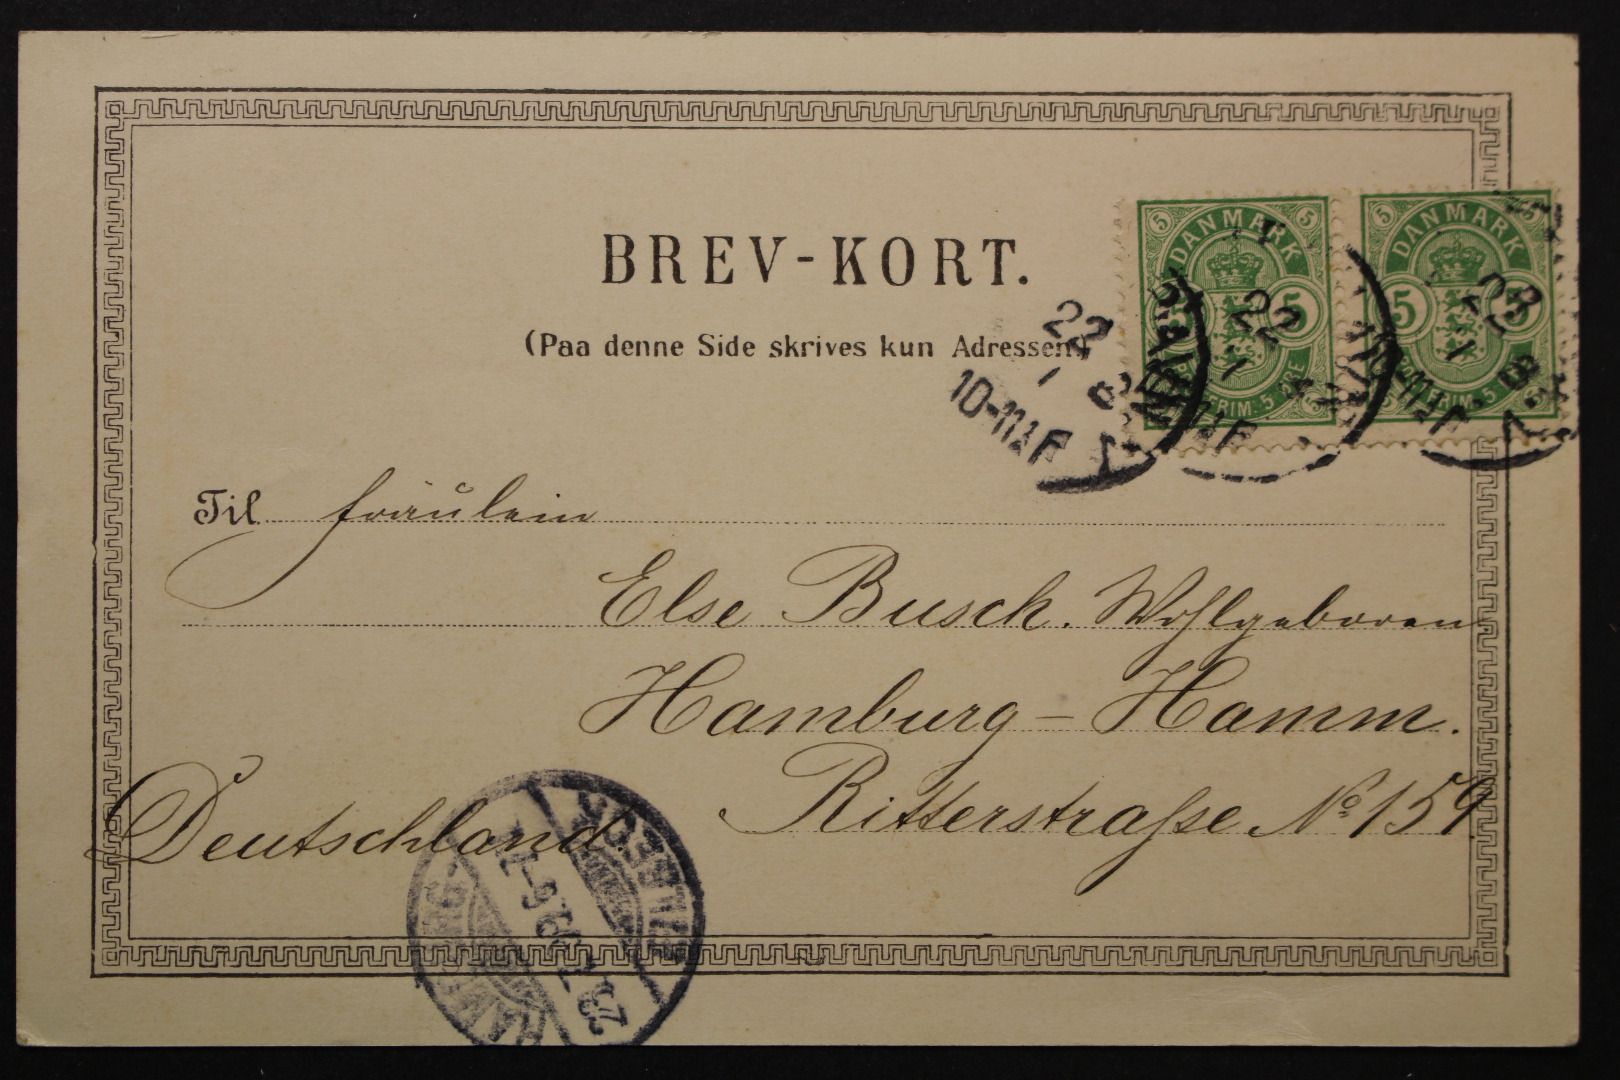 BREV-KORT.
(Paa denne Side skrives kun Adressen)
5 DANMARK 5
5 5
5 DANMARK 5
5 5
22
1
10-11¼F
22
1
22
1
Til fräulein
Else Busch. Wohlgeboren
Hamburg-Hamm.
Ritterstraße No 159
Deutschland.